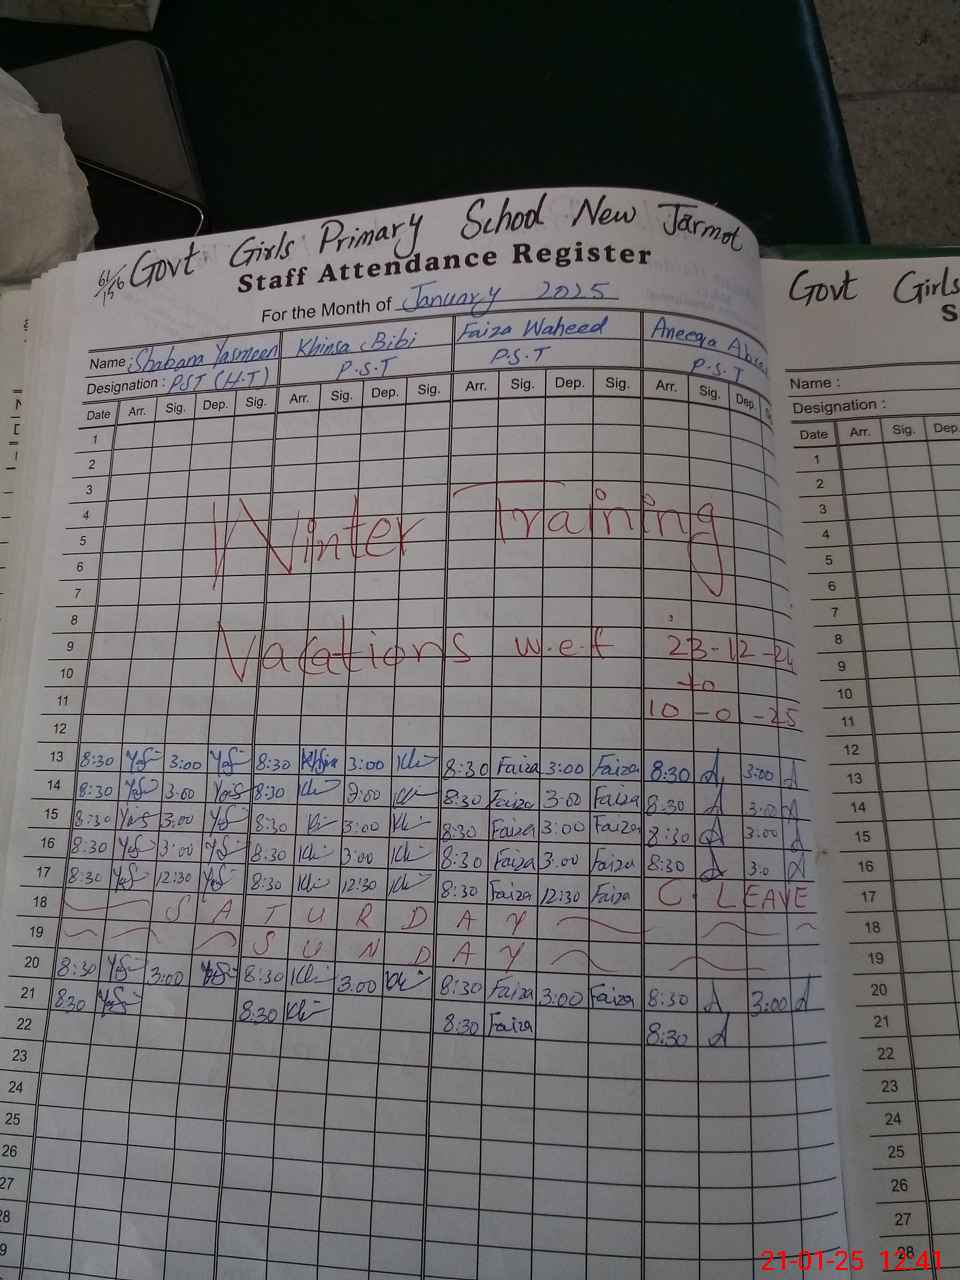 Govt Girls Primary School New Jarmot
Staff Attendance Register
For the Month of January 2025
Name: Shabana Yasmeen Khinsa Bibi Faiza Waheed Aneeqa
Designation: PST (H.T) P.S.T P.S.T P.S.T
Date Arr. Sig. Dep. Sig. Arr. Sig. Dep. Sig. Arr. Sig. Dep. Sig. Arr. Sig. Dep.
1
2
3
4
Winter Training
5
6
7
8
9
Vacations w.e.f 23-12-24
10
to
11
10-01-25
12
13 8:30 3:00 8:30 3:00 8:30 Faiza 3:00 Faiza 8:30 3:00
14 8:30 3:00 8:30 3:00 8:30 Faiza 3:00 Faiza 8:30 3:00
15 8:30 3:00 8:30 3:00 8:30 Faiza 3:00 Faiza 8:30 3:00
16 8:30 3:00 8:30 3:00 8:30 Faiza 3:00 Faiza 8:30 3:0
17 8:30 12:30 8:30 12:30 8:30 Faiza 12:30 Faiza C. LEAVE
18 SATURDAY
19 SUNDAY
20 8:30 3:00 8:30 3:00 8:30 Faiza 3:00 Faiza 8:30 3:00
21 8:30 8:30 8:30 Faiza 8:30
22
23
24
25
26
27
28
9
Govt Girls
S
Name :
Designation :
Date Arr. Sig. Dep.
1
2
3
4
5
6
7
8
9
10
11
12
13
14
15
16
17
18
19
20
21
22
23
24
25
26
27
28
21-01-25 12:41